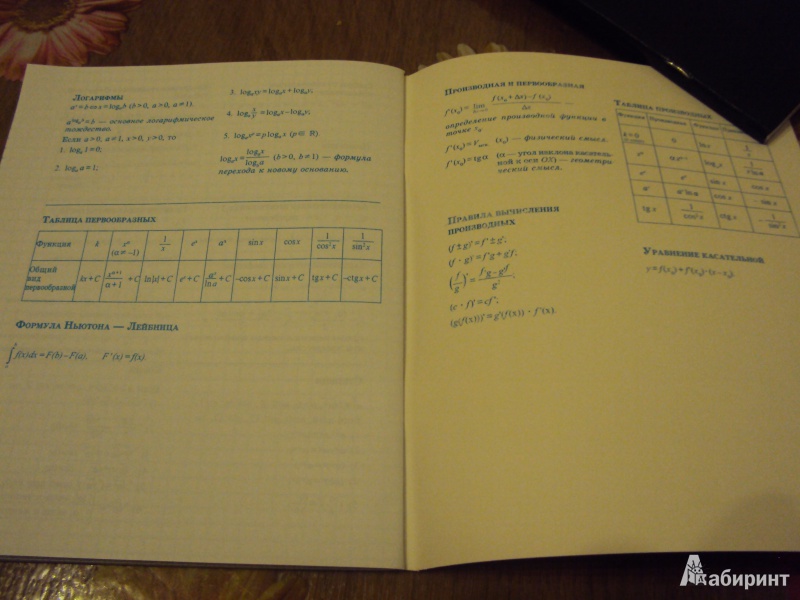 Логарифмы
aˣ = b ⇔ x = logₐb (b>0, a>0, a≠1).
a^(logₐb) = b — основное логарифмическое
тождество.
Если a>0, a≠1, x>0, y>0, то
1. logₐ1=0;
2. logₐa=1;
3. logₐxy=logₐx+logₐy;
4. logₐ(x/y)=logₐx−logₐy;
5. logₐxᵖ=p logₐx (p∈R)
(b>0, b≠1) — формула
перехода к новому основанию.
Таблица первообразных
Функция k xᵅ (α≠−1) 1/x eˣ aˣ sin x cos x 1/cos²x 1/sin²x
Общий вид первообразной kx+C x^(α+1)/(α+1)+C ln|x|+C eˣ+C aˣ/ln a+C −cos x+C sin x+C tg x+C −ctg x+C
Формула Ньютона — Лейбница
f(x)dx=F(b)−F(a). F'(x)=f(x).
Производная и первообразная
f'(x₀)= lim (f(x₀+Δx)−f(x₀))/Δx —
определение производной функции в
точке x₀
(x₀) — физический смысл.
f'(x₀)=tg α (α — угол наклона касатель-
ной к оси OX) — геометри
ческий смысл.
Правила вычисления
производных
(f ± g)' = f' ± g';
(f · g)' = f'g + g'f;
(f/g)' = (f'g − g'f)/g²;
(c · f)' = cf';
(g(f(x)))' = g'(f(x)) · f'(x).
Таблица производных
Функция Производная Функция Производная
0 ln x 1/x
logₐx
eˣ eˣ sin x cos x
aˣ aˣ ln a cos x − sin x
tg x 1/cos²x ctg x −1/sin²x
Уравнение касательной
y=f(x₀)+f'(x₀)·(x−x₀).
Лабиринт